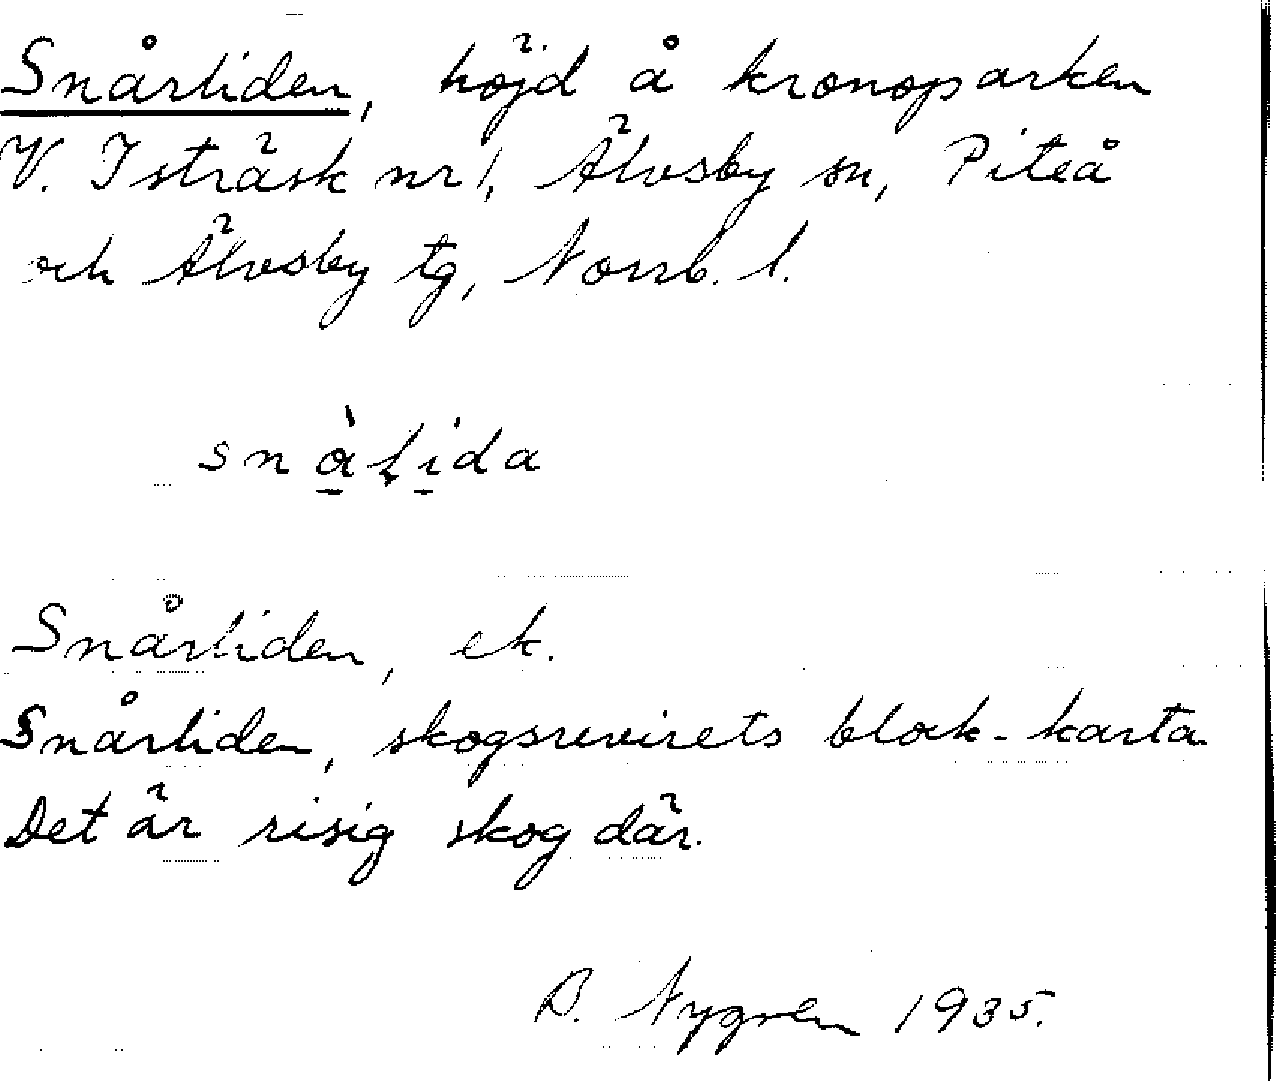 Snårliden, höjd å kronoparken
V. Isträsk nr 1, Älvsby sn, Piteå
och Älvsby tg, Norrb. l.
snå̀lida
Snårliden, ek.
Snårliden, skogsrevirets block-karta.
Det är risig skog där.
B. Nygren 1935.